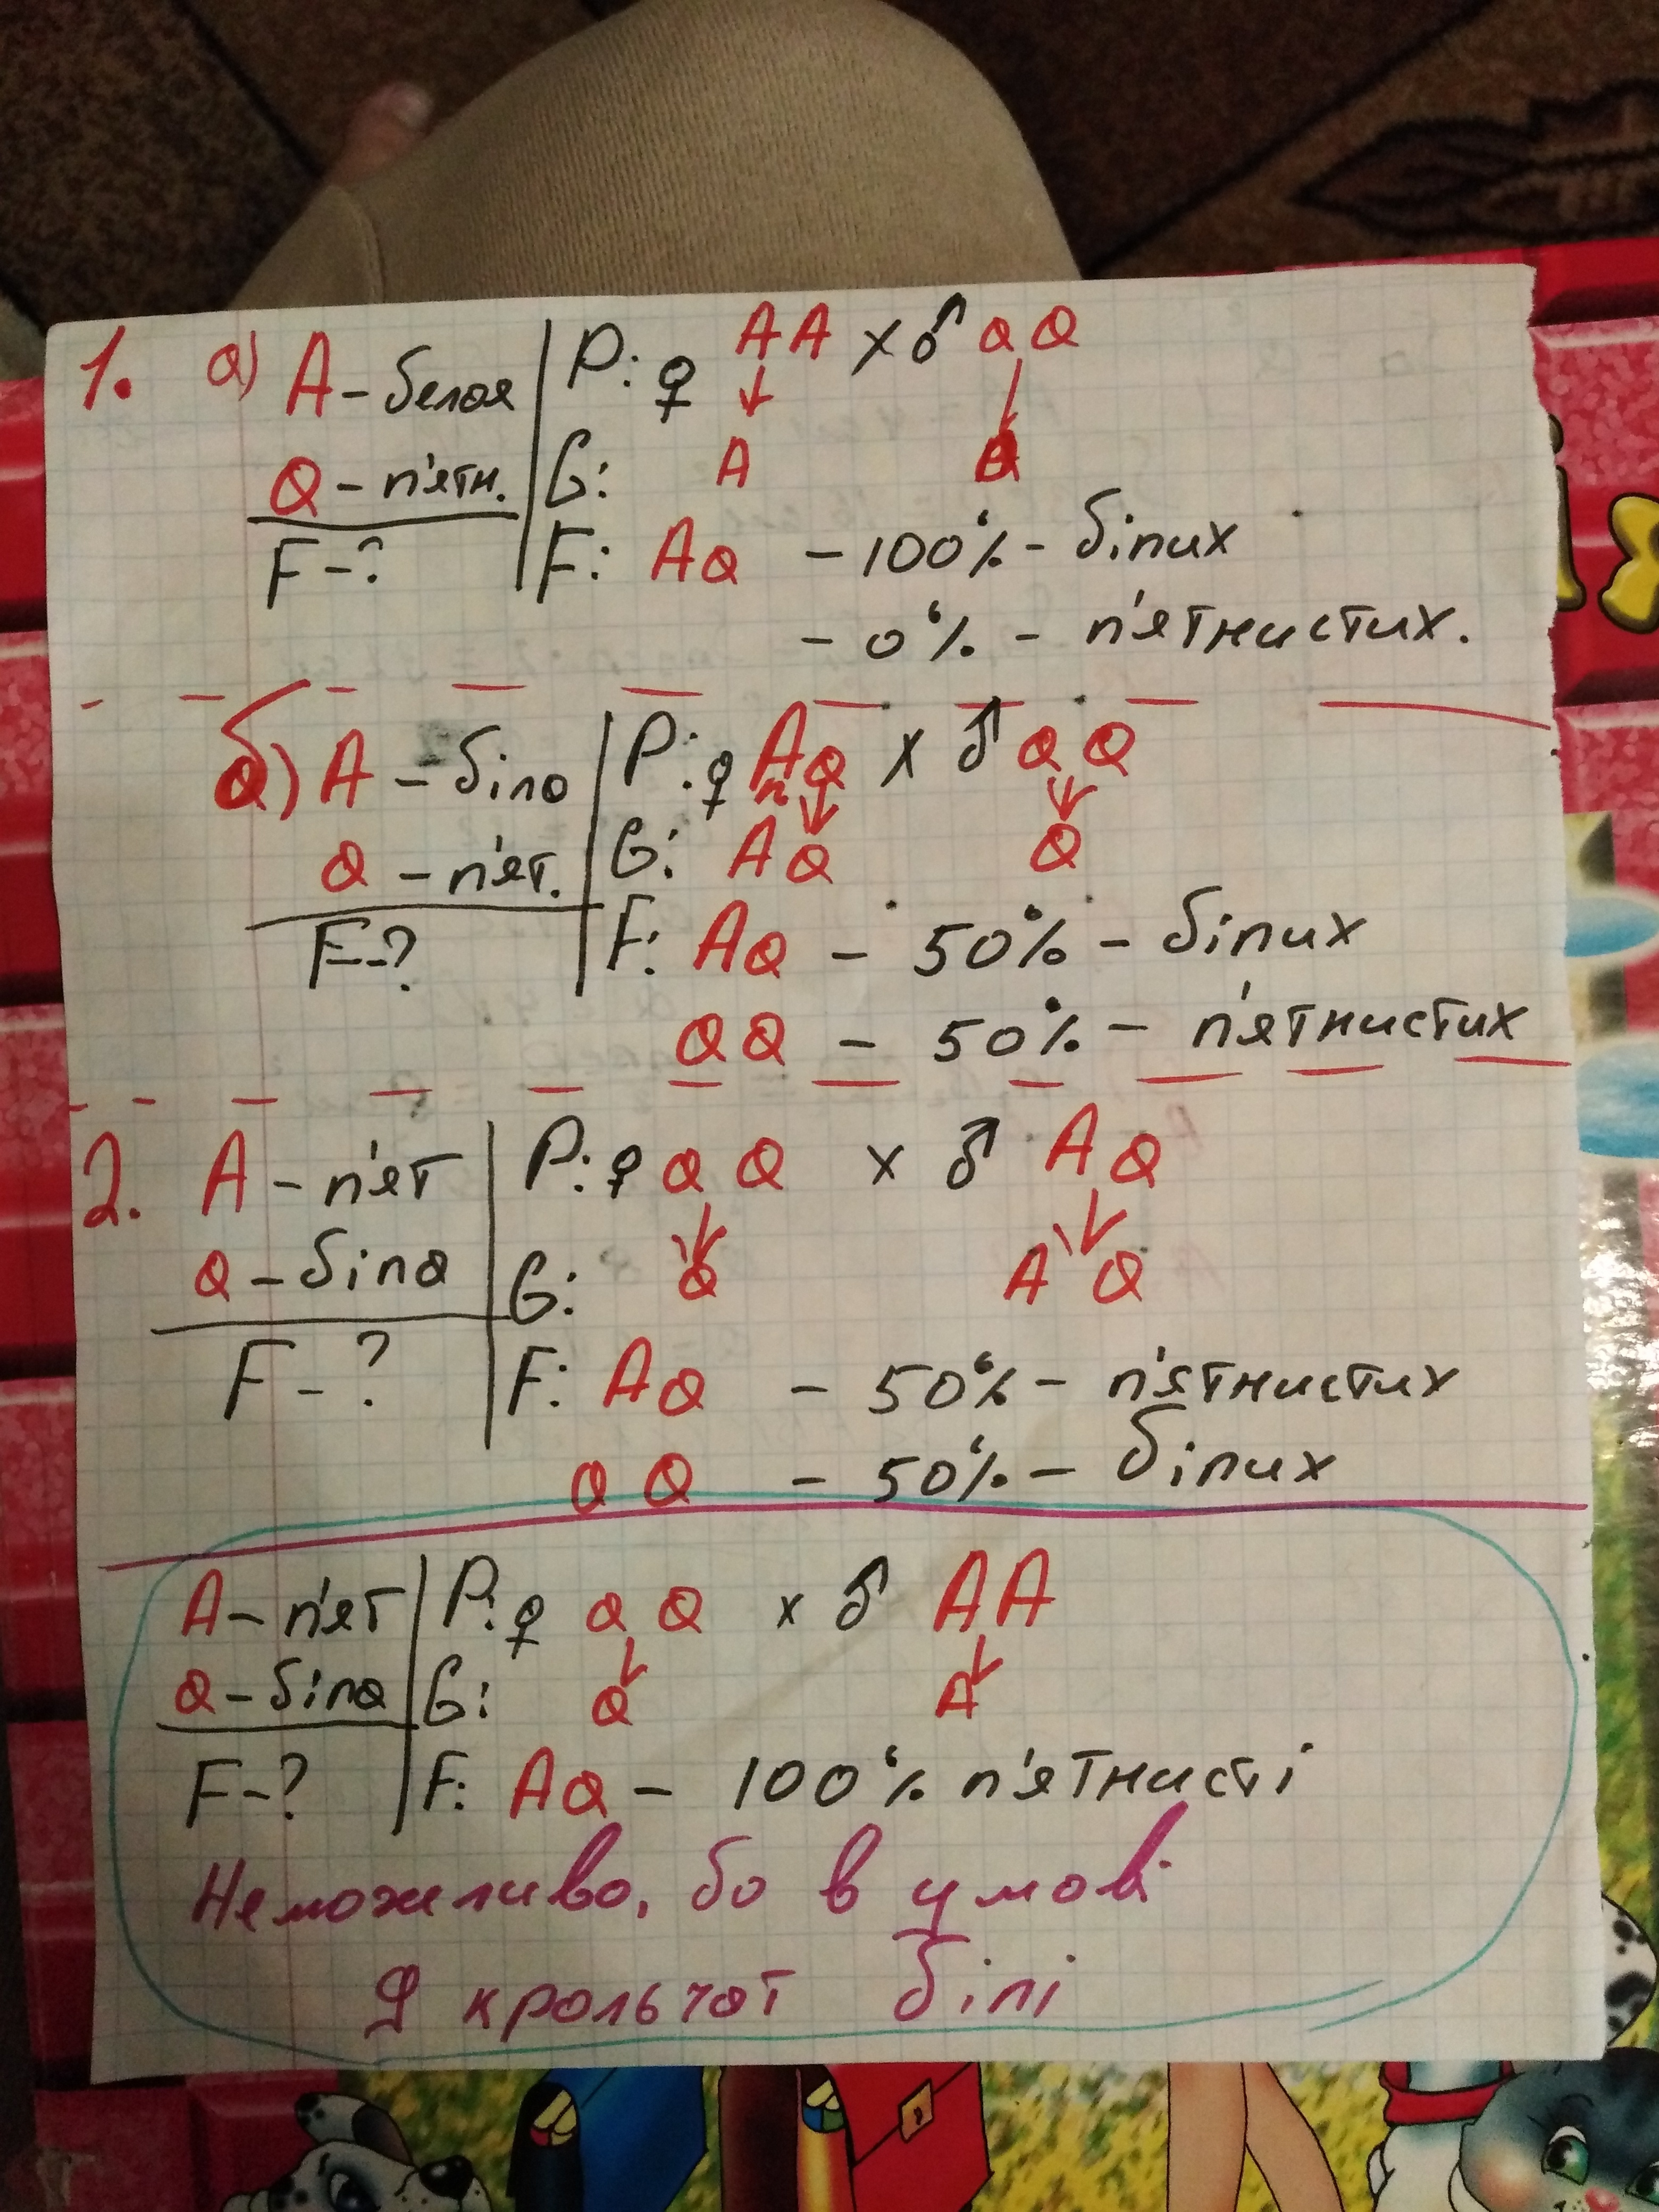 1. а) А - белая | P: ♀ AA x ♂ aa
a - п'ятн. | G: A a
F - ? | F: Aa - 100% - білих
- 0% - п'ятнистих.
б) А - біла | P: ♀ Aa x ♂ aa
a - п'ят. | G: A a a
F - ? | F: Aa - 50% - білих
aa - 50% - п'ятнистих
2. А - п'ят | P: ♀ aa x ♂ Aa
a - біла | G: a A a
F - ? | F: Aa - 50% - п'ятнистих
aa - 50% - білих
А - п'ят | P: ♀ aa x ♂ AA
a - біла | G: a A
F - ? | F: Aa - 100% п'ятнисті
Неможливо, бо в умові
9 крольчат білі